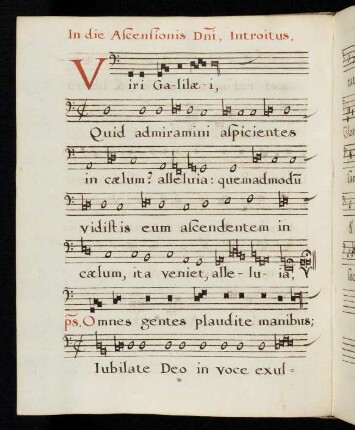 In die Ascensionis Dnī, Introitus,
Viri Ga-lilæ-i,
Quid admiramini aſpicientes
in cælum? alleluia: quemadmodū
vidiſtis eum aſcendentem in
cælum, ita veniet, alle-lu-ia,
ps. Omnes gentes plaudite manibus;
Iubilate Deo in voce exul-